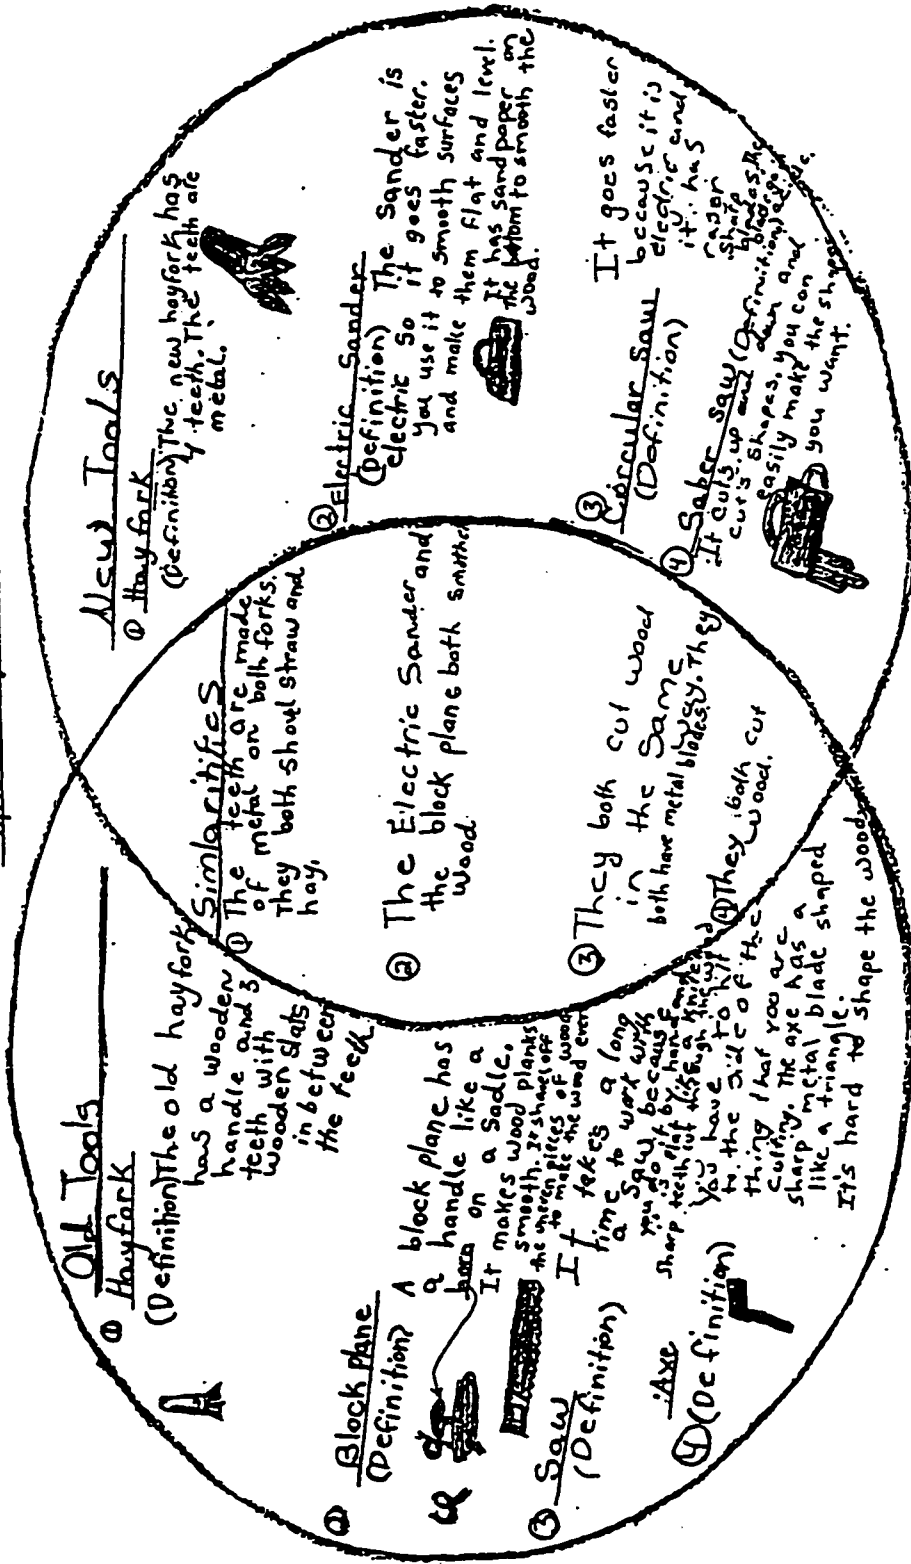 Old Tools
① Hayfork
(Definition) The old hayfork
has a wooden
handle and 3
teeth with
wooden slats
in between
the teeth
② Block plane
(Definition)
A block plane has
a handle like a
horn on a Sadle.
It makes wood planks
smooth. It shaves off
the uneven pieces of wood
to make the wood even
③ Saw
(Definition)
It takes a long
time to work with
a saw because
you do it by hand and
it is flat like a knife
sharp teeth cut through the wood
Axe
④ (Definition)
You have to hit
to the side of the
thing that you are
cutting. The axe has a
sharp metal blade shaped
like a triangle.
It's hard to shape the wood
Simlaritifies
① The teeth are made
of metal on both forks.
They both shovl straw and
hay.
② The Electric Sander and
the block plane both smothe
wood
③ They both cut wood
in the Same
way. They
both have metal blades.
④ They both cut
wood.
New Tools
① Hayfork
(Definition) The new hayfork has
4 teeth. The teeth are
metal.
② Electric Sander
(Definition) The sander is
electric so it goes faster.
you use it to smooth surfaces
and make them flat and level.
It has sandpaper on
the bottom to smooth the
wood.
③ Circular Saw
(Definition)
It goes faster
because it is
electric and
it has
razor
sharp
blades.
④ Saber Saw (Definition)
It cuts up and down and
cuts shapes. you can
easily make the shape
you want.